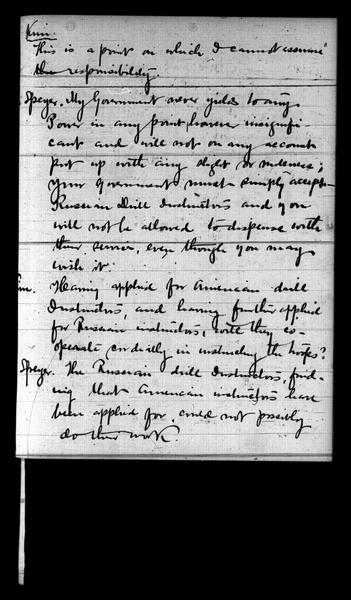 Kim.
This is a point on which I cannot assume
the responsibility.
Speyer. My Government never yields to any
Power in any point, however insignifi
cant and will not on any account
put up with any slight or rudeness;
your government must simply accept
Russian Drill Instructors and you
will not be allowed to dispense with
their service, even though you may
wish it.
Kim. Having applied for American drill
Instructors, and having further applied
for Russian instructors, will they co-
operate cordially in instructing the troops?
Speyer. The Russian drill Instructors, find-
ing that American instructors have
been applied for, could not possibly
do their work.